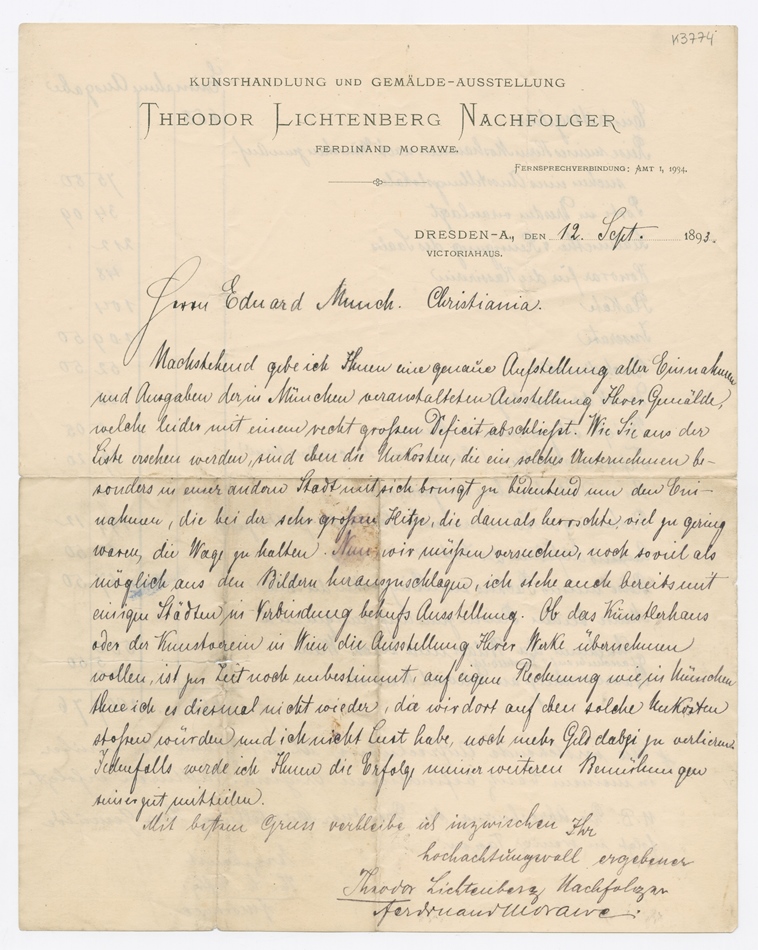 K3774
KUNSTHANDLUNG UND GEMÄLDE-AUSSTELLUNG
THEODOR LICHTENBERG NACHFOLGER
FERDINAND MORAWE.
FERNSPRECHVERBINDUNG: AMT 1, 1994.
DRESDEN-A., DEN 12. Sept. 1893.
VICTORIAHAUS.
Herrn Eduard Munch. Christiania.
Nachstehend gebe ich Ihnen eine genaue Aufstellung aller Einnahmen
und Ausgaben der in München veranstalteten Ausstellung Ihrer Gemälde,
welche leider mit einem recht großen Deficit abschließt. Wie Sie aus der
Liste ersehen werden, sind eben die Unkosten, die ein solches Unternehmen be-
sonders in einer andern Stadt mit sich bringt zu bedeutend um den Ein-
nahmen, die bei der sehr großen Hitze, die damals herrschte viel zu gering
waren, die Wage zu halten. Nun wir müßen versuchen, noch soviel als
möglich aus den Bildern herauszuschlagen, ich stehe auch bereits mit
einigen Städten in Verbindung behufs Ausstellung. Ob das Künstlerhaus
oder der Kunstverein in Wien die Ausstellung Ihrer Werke übernehmen
wollen, ist zur Zeit noch unbestimmt, auf eigne Rechnung wie in München
thue ich es diesmal nicht wieder, da wir dort auf eben solche Unkosten
stoßen würden und ich nicht Lust habe, noch mehr Geld dabei zu verlieren.
Jedenfalls werde ich Ihnen die Erfolge meiner weiteren Bemühungen
seiner Zeit mitteilen.
Mit bestem Gruss verbleibe ich inzwischen Ihr
hochachtungsvoll ergebener
Theodor Lichtenberg Nachfolger
Ferdinand Morawe.